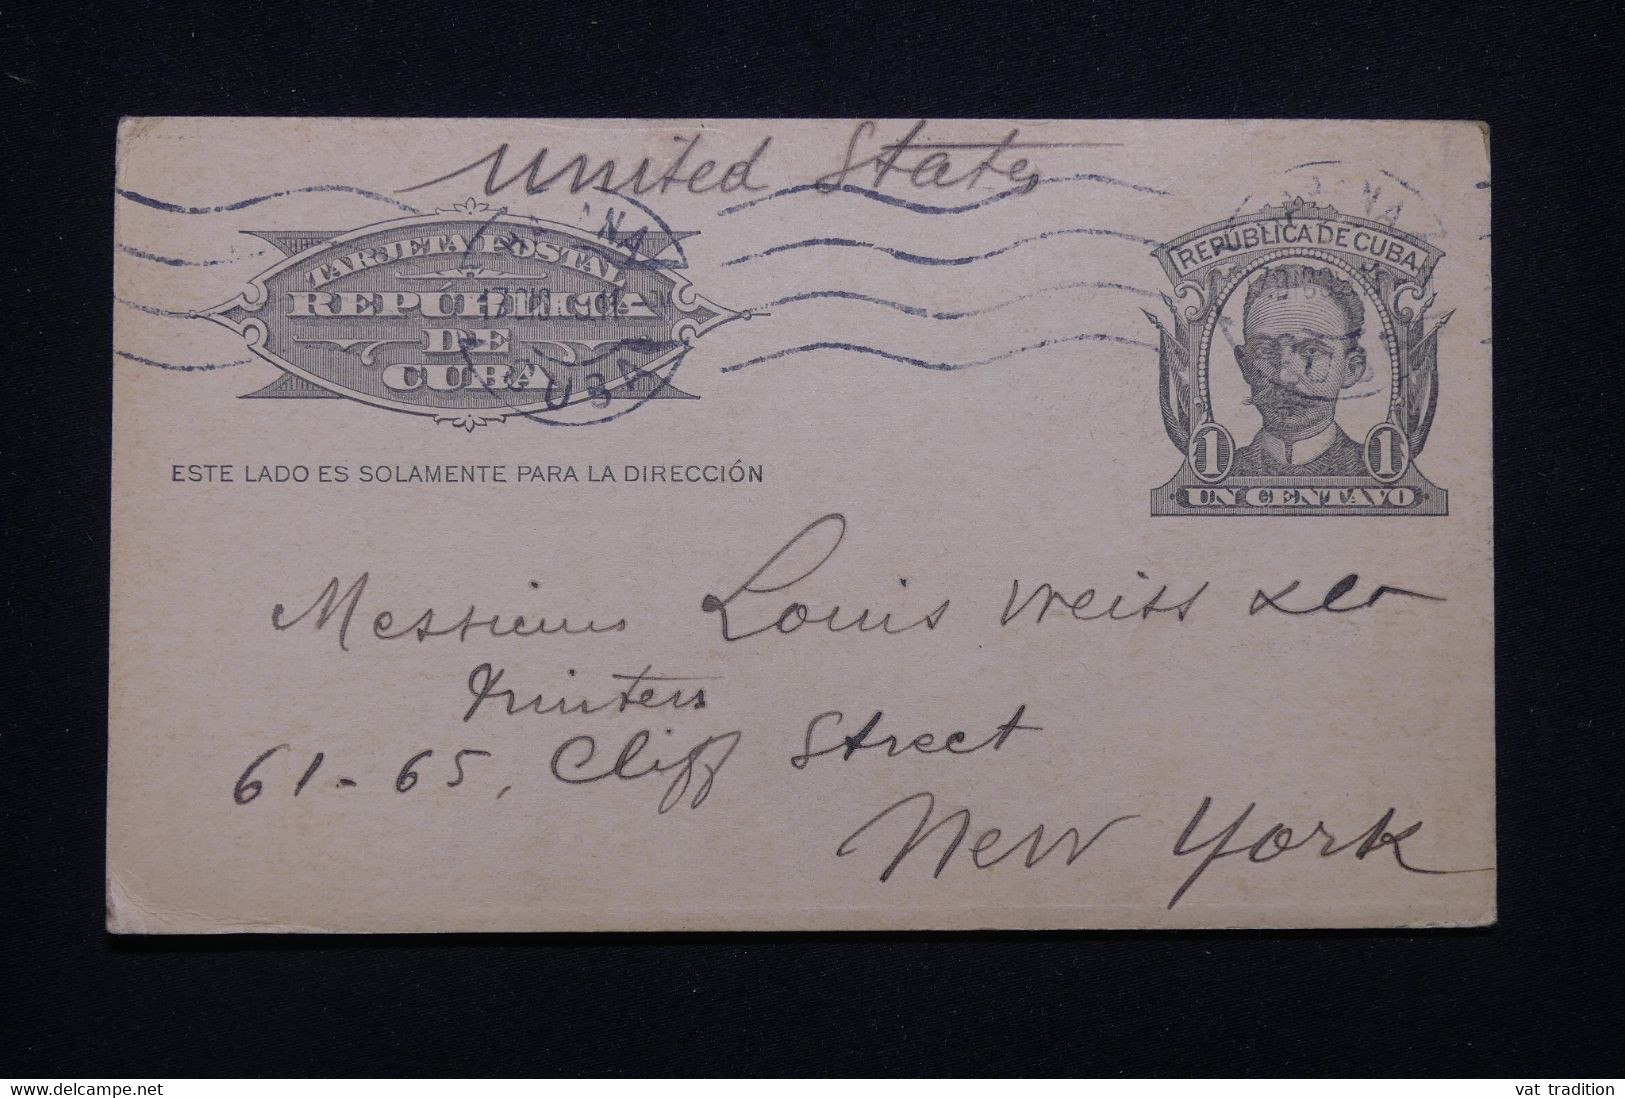 United States
TARJETA POSTAL
REPÚBLICA
DE
CUBA
CUBA
REPÚBLICA DE CUBA
1 1
UN CENTAVO
ESTE LADO ES SOLAMENTE PARA LA DIRECCIÓN
Messieurs Louis Weiss & Co
Printers
61-65, Cliff Street
New York
www.delcampe.net
vat tradition